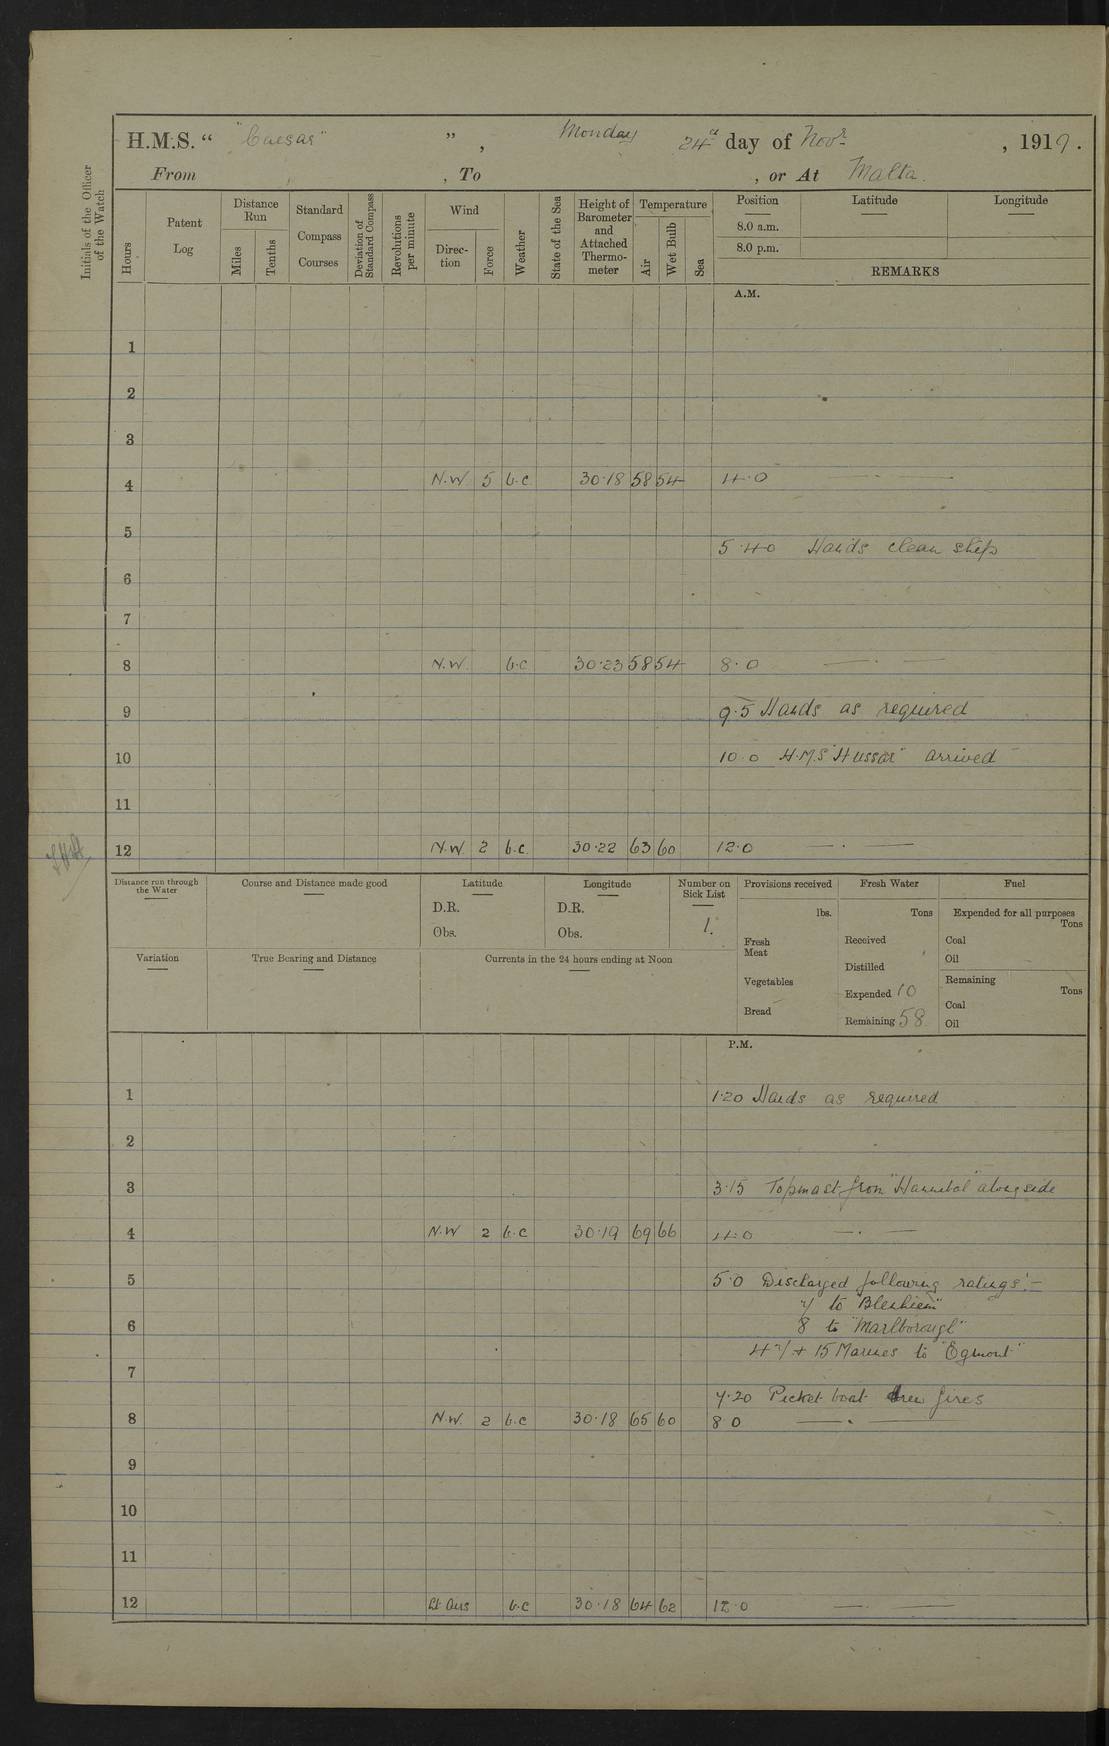 H.M.S. “ "Caesar" ”, Monday 24th day of Novr , 1919.
From , , To , or At Malta.
Initials of the Officer of the Watch
Hours
Patent Log
Distance Run
Miles
Tenths
Standard Compass Courses
Deviation of Standard Compass
Revolutions per minute
Wind
Direction
Force
Weather
State of the Sea
Height of Barometer and Attached Thermometer
Temperature
Air
Wet Bulb
Sea
Position
Latitude
Longitude
8.0 a.m.
8.0 p.m.
REMARKS
A.M.
1
2
3
4 N.W 5 b.c 30.18 58 54 4.0
5
5.40 Hands clean ship
6
7
8 N.W. b.c 30.23 58 54 8.0
9 9.5 Hands as required
10 10.0 H.M.S "Hussar" arrived
11
12 N.W. 2 b.c. 30.22 63 60 12.0
Distance run through the Water
Course and Distance made good
Latitude
D.R.
Obs.
Longitude
D.R.
Obs.
Number on Sick List
1.
Provisions received
lbs.
Fresh Meat
Vegetables
Bread
Fresh Water
Tons
Received
Distilled
Expended 10
Remaining 58
Fuel
Expended for all purposes
Tons
Coal
Oil
Remaining
Tons
Coal
Oil
Variation
True Bearing and Distance
Currents in the 24 hours ending at Noon
P.M.
1 1.20 Hands as required
2
3 3.15 Topmast from "Hannibal" alongside
4 N.W 2 b.c 30.19 69 66 4.0
5 5.0 Discharged following ratings:-
to "Blenheim"
6 8 to "Marlborough"
+ 15 Marines to "Egmont"
7
7.20 Picket boat drew fires
8 N.W. 2 b.c 30.18 65 60 8.0
9
10
11
12 Lt Airs b.c 30.18 64 62 12.0